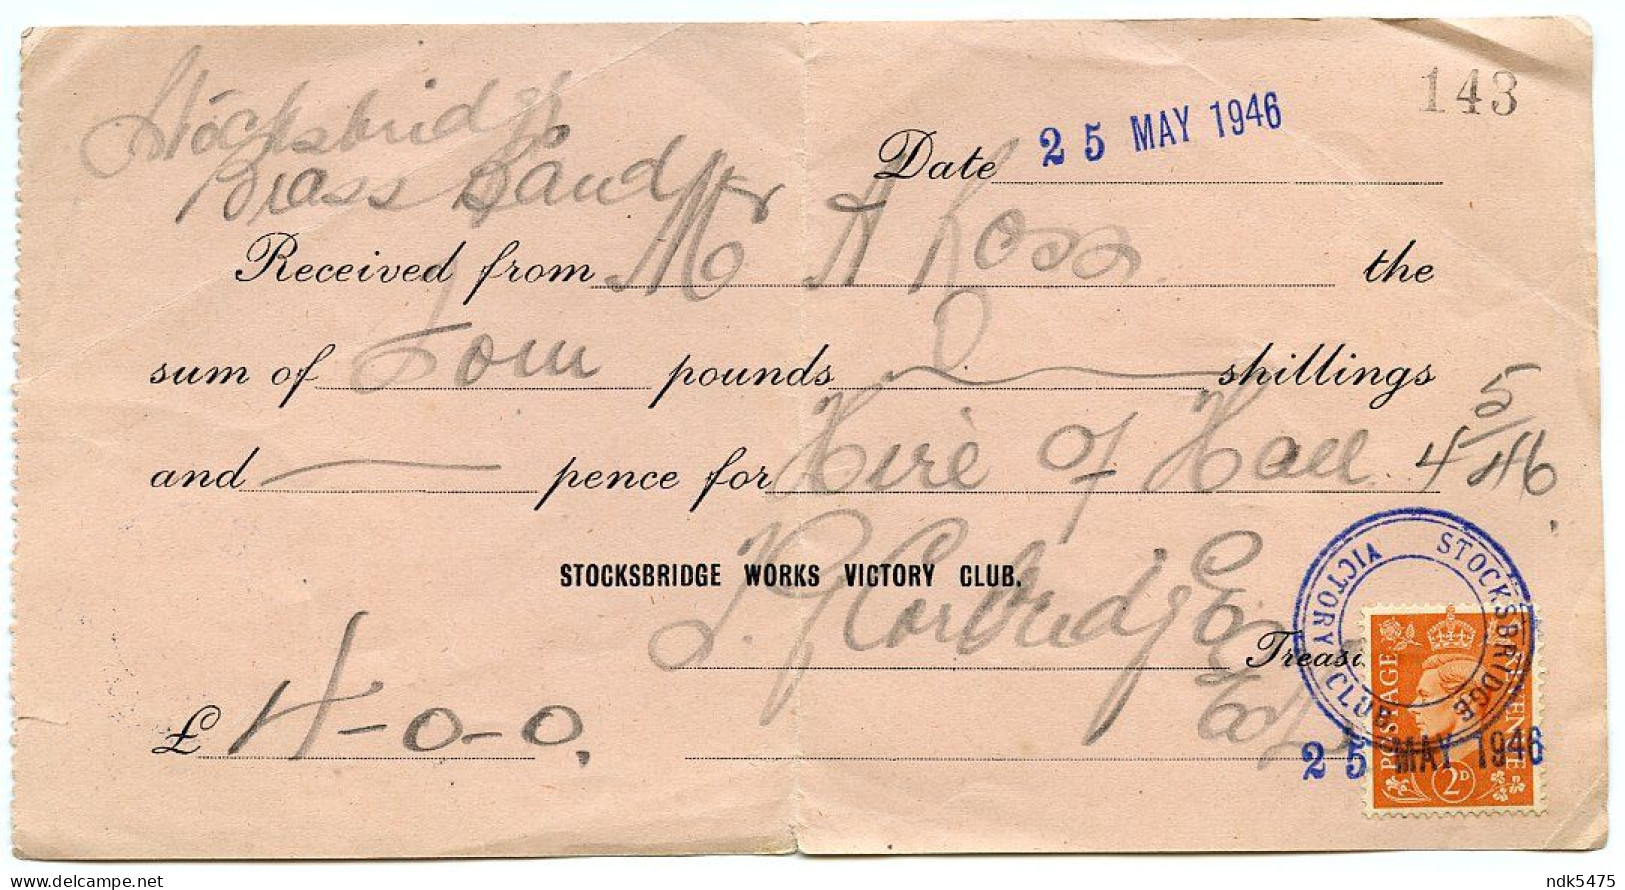 143
Stocksbridge
Brass Band
Date 25 MAY 1946
Received from Mr A Ross the
sum of Four pounds 0 shillings
and — pence for Hire of Hall 4/5/46.
STOCKSBRIDGE WORKS VICTORY CLUB.
Treasu
£ 4-0-0.
STOCKSBRIDGE VICTORY CLUB
25 MAY 1946
POSTAGE
2D
ndk5475